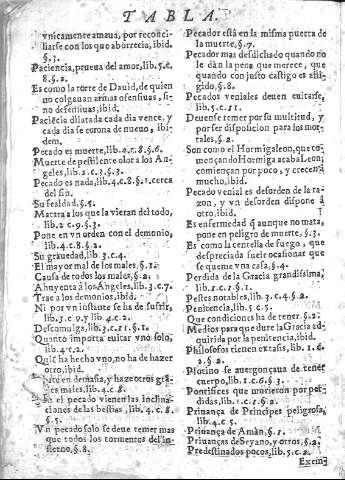 TABLA.
vnicamente amaua, por reconci-
liarse con los que aborrecia, ibid.
§.3.
Paciencia, prueua del amor, lib.5.c.
8.§.2.
Es como la torre de Dauid, de quien
no colgauan armas ofensiuas, si-
no defensiuas, ibid.
Paciēcia dilatada cada dia vence, y
cada dia se corona de nueuo, ibi-
dem.
Pecado es muerte, lib.2.c.8.§.6.
Muerte de pestilente olor a los An-
geles, lib.2.c.3.§.3.
Pecado es nada, lib.4.c.8.§.1.cerca
del fin.
Su fealdad.§.5.
Matara a los que la vieran del todo,
lib.2 c.9.§.3.
Pone en vn orden con el demonio,
lib.4.c.8.§.2.
Su grauedad, lib.3.c.4.
El mayor mal de los males, §.1.
Causa de todos los males, §.2.
Ahuyenta a los Angeles, lib.3.c.7.
Trae a los demonios, ibid.
Ni por vn instante se ha de sufrir,
lib.3.c 9.y lib.4.c.2.
Descomulga, lib.3.c.11.§.1.
Quanto importa euitar vno solo,
lib.4.c.2.
Quiē ha hecho vno, no ha de hazer
otro, ibid.
en demasia, y haze otros grā-
es males, lib.4.c.8.
En el pecado vienen las inclina-
ciones de las bestias, lib.4.c.8.
§.5.
Vn pecado solo se deue temer mas
que todos los tormentos del in-
fierno, §.8.
Pecador està en la misma puerta de
la muerte, §.7.
Pecador mas desdichado quando no
le dàn la pena que merece, que
quando con justo castigo es afli-
gido, §.8.
Pecados veniales deuen euitarse,
lib.5.c.11.
Deuense temer por su multitud, y
por ser disposicion para los mor-
tales, §.2.
Son como el Hormigaleon, que co-
mençando Hormiga acaba Leon;
comiençan por poco, y crecen à
mucho, ibid.
Pecado venial es desorden de la ra-
zon, y vn desorden dispone à
otro, ibid.
Es enfermedad q̄ aunque no mata,
pone en peligro de muerte, §.3.
Es como la centella de fuego, que
despreciada suele ocasionar que
se queme vna casa, §.4.
Perdida de la Gracia grandissima,
lib.1.c.1.§.1.
Pestes notables, lib.3.c.4.§.2.
Penitencia, lib.5.c.5.
Que condiciones ha de tener.§.2.
Medios para que dure la Gracia ad-
quirida por la penitencia, ibid.
Philosofos tienen extasis, lib.1.c.
2.§.2.
Plotino se auergonçaua de tener
cuerpo, lib.1.c.6.§.3.
Pontifices que murieron por per-
didas, lib.1.c.1.§.2.
Priuança de Principes peligrosa,
lib.4.c.5.
Priuança de Amàn, §.1.
Priuanças de Seyano, y otros, §.2.
Predestinados pocos, lib.5.c.2.